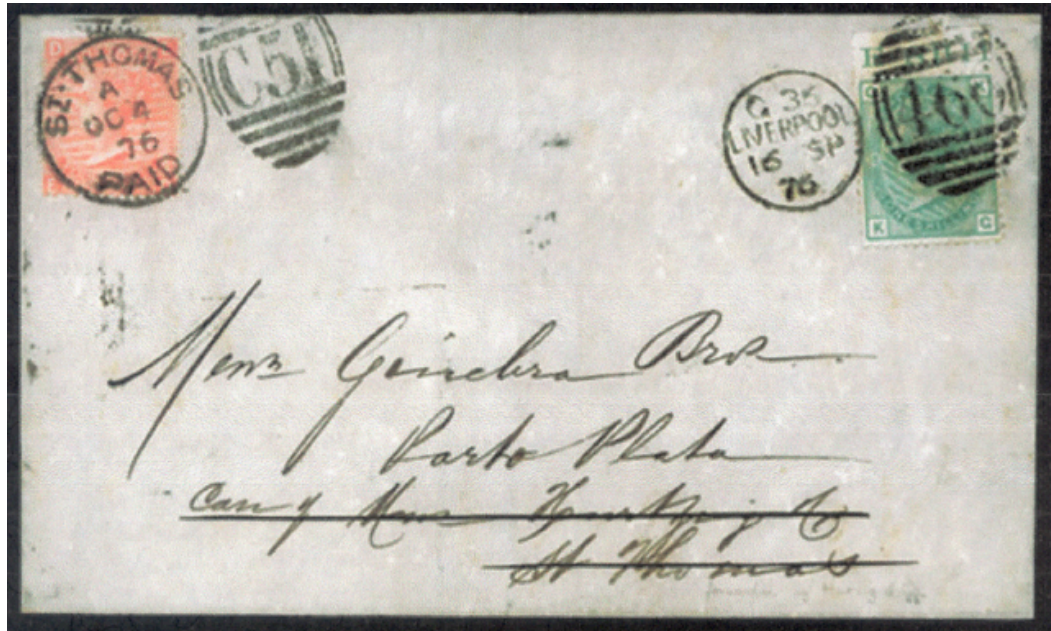 ST. THOMAS
A
OC 4
76
PAID
C51
G 35
LIVERPOOL
16 SP
76
466
K G
Messrs Ginebra Bros
Porto Plata
Care of Messrs &
St Thomas